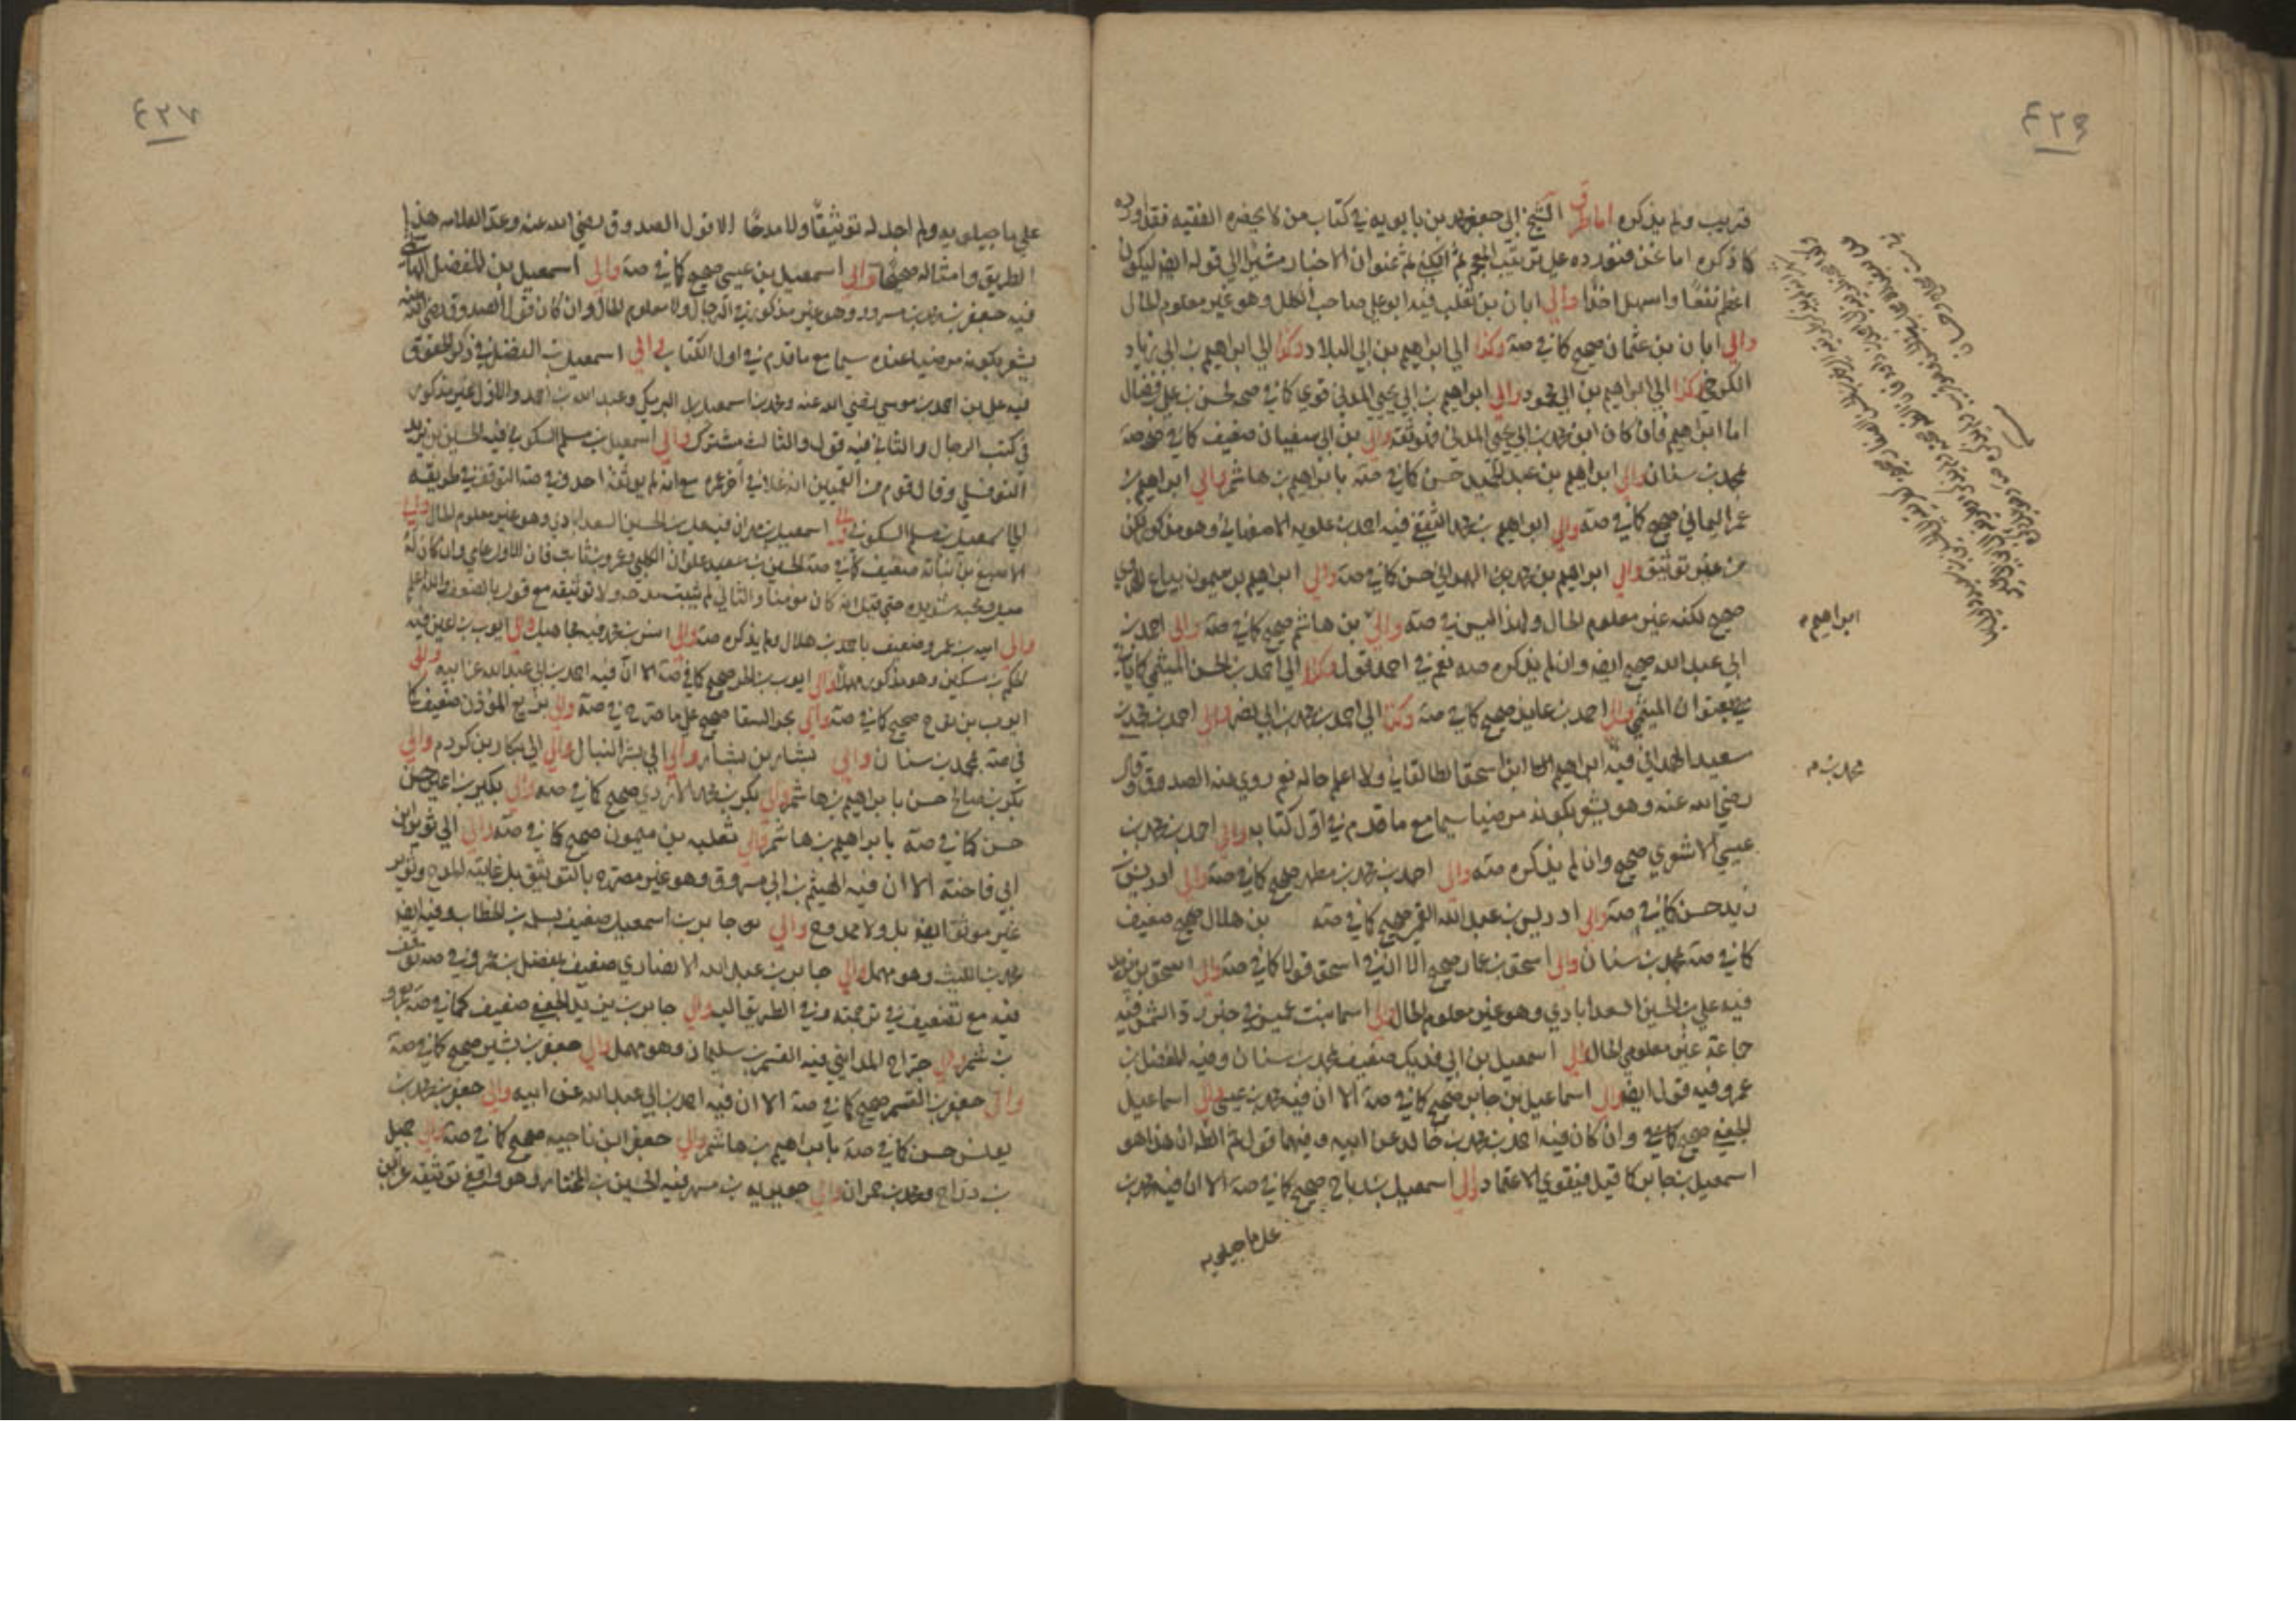 ٤٢٦
قريب ولم يذكره اما طرق الشيخ ابي جعفر محمد بن بابويه في كتاب من لا يحضره الفقيه فقد اورده
كما ذكره اما نحن فنورده على ترتيب المعجم ثم الكنى ثم عنوان الاخبار مشيرا الى قوله ايضا ليكون
اعظم نفعا واسهل اخذا والى ابان بن تغلب فيه ابو علي صاحب الكلل وهو غير معلوم الحال
والى ابان بن عثمان صحيح كما في صة وكذا الى ابراهيم بن ابي البلاد وكذا الى ابراهيم بن ابي زياد
الكوفي وكذا الى ابراهيم بن ابي محمود والى ابراهيم بن ابي يحيى المدني قوي كما في صحة لحسن بن علي فضال
اما ابراهيم فان كان ابن محمد بن ابي يحيى المدني فلوثقه والى بن ابي سفيان ضعيف كما في صة
بمحمد بن سنان والى ابراهيم بن عبد الحميد حسن كما في صة بابراهيم بن هاشم والى ابراهيم بن
عمر اليماني صحيح كما في صة والى ابراهيم بن محمد الثقفي فيه احمد بن علويه الاصفهاني وهو مذكور لكن
من غير توثيق والى ابراهيم بن مهزيار حسن كما في صة والى ابراهيم بن ميمون بياع الهروي
صحيح لكنه غير معلوم الحال ولهذا ليس في صة والى بن هاشم صحيح كما في صة والى احمد بن
ابي عبد الله صحيح ايضا وان لم يذكره صه نعم في احمد قول وكذا الى احمد بن الحسن الميثمي كما
بعنوان الميثمي والى احمد بن عايذ صحيح كما في صة وكذا الى احمد بن محمد بن ابي نصر والى احمد بن محمد بن
سعيد الهمداني فيه ابراهيم ابن اسحق الطالقاني ولا اعلم حاله نعم روى عنه الصدوق وقال
رضي الله عنه وهو يشعر بكونه مرضيا سيما مع ما قدم في اول كتابه والى احمد بن محمد بن
عيسى الاشعري صحيح وان لم يذكره صة والى احمد بن محمد بن مطهر صحيح كما في صة والى ادريس بن
زيد حسن كما في صة والى ادريس بن عبد الله القمي صحيح كما في صة بن هلال صحيح ضعيف
كما في صة بمحمد بن سنان والى اسحق بن عمار صحيح الا ان في اسحق قولا كما في صة والى اسحق بن يزيد
فيه علي بن الحسين السعدابادي وهو غير معلوم الحال والى اسما بنت عميس في خبر رد الشمس فيه
جماعة غير معلومي الحال والى اسمعيل بن ابي فديك ضعيف بمحمد بن سنان وفيه المفضل بن
عمر وفيه قول ايضا والى اسماعيل بن جابر صحيح كما في صة الا ان فيه محمد بن عيسى والى اسماعيل
الجعفي صحيح كما في وان كان فيه احمد بن محمد بن خالد عن ابيه وفيهما قول ثم الظ ان هذا هو
اسمعيل بن جابر كما قيل فيقوى الاعتماد والى اسمعيل بن رباح صحيح كما في صة الا ان فيه محمد بن
علي ماجيلويه
ابراهيم
محمد بن
٤٢٧
علي ماجيلويه ولم اجد له توثيقا ولا مدحا الا قول الصدوق رضي الله عنه وعد العلامه هذا
الطريق وامثاله صحيحا والى اسمعيل بن عيسى صحيح كما في صة والى اسمعيل بن الفضل الهاشمي
فيه جعفر بن محمد بن مسرور وهو غير مذكور في الرجال ولا معلوم الحال وان كان قول الصدوق رضي الله عنه
يشعر بكونه مرضيا عنده سيما مع ما قدم في اول الكتاب والى اسمعيل بن الفضل في ذكر الحقوق
فيه علي بن احمد بن موسى رضي الله عنه ومحمد بن اسمعيل البرمكي وعبد الله بن احمد والاول غير مذكور
في كتب الرجال والثاني فيه قول والثالث مشترك والى اسمعيل بن مسلم السكوني فيه الحسين بن يزيد
النوفلي وقال قوم من القميين انه غلا في آخر عمره مع انه لم يوثقه احد وفي صة التوقف في طريقه
الى اسمعيل بن مسلم السكوني والى اسمعيل بن مهران فيه علي بن الحسين السعدابادي وهو غير معلوم الحال والى
الاصبغ بن نباتة ضعيف كما في صة الحسين بن علوان الكلبي وعمرو بن ثابت فان الاول عامي وان كان له
ميل ومحبة شديده حتى قيل انه كان مومنا والثاني لم يثبت مدحه ولا توثيقه مع قول بالضعف والله اعلم
والى اميه بن عمرو ضعيف باحمد بن هلال ولم يذكره صة والى انس بن محمد فيه مجاهيل والى ايوب بن اعين فيه
الحكم بن مسكين وهو مذكور مهملا والى ايوب بن الحر صحيح كما في صة الا ان فيه احمد بن ابي عبد الله عن ابيه والى
ايوب بن نوح صحيح كما في صة والى بحر السقا صحيح على ما صرح في صة والى بزيع المؤذن ضعيف كما
في صة بمحمد بن سنان والى بشار بن يسار والى ابي بشر النبال والى الى بكار بن كردم والى
بكر بن صالح حسن بابراهيم بن هاشم والى بكر بن محمد الازدي صحيح كما في صة والى بكير بن اعين حسن
حسن كما في صة بابراهيم بن هاشم والى ثعلبه بن ميمون صحيح كما في صة والى الى ثوير بن
ابي فاخته الا ان فيه الهيثم بن ابي مسروق وهو غير مصرح بالتوثيق بل غايته المدح وثوير
غير موثق ايضا بل ولا ممدوح والى جابر بن اسمعيل ضعيف بسلمة بن الخطاب وفيه ايضا
محمد بن الليث وهو مهمل والى جابر بن عبد الله الانصاري ضعيف بمفضل بن عمر وفي صة توقف
فيه مع تضعيف في ترجمته وفي الطريق اليه والى جابر بن يزيد الجعفي ضعيف كما في صة بعمرو
بن شمر والى جراح المدايني فيه القسم بن سليمان وهو مهمل والى جعفر بن بشير صحيح كما في صة
والى جعفر بن القسم صحيح كما في صة الا ان فيه احمد بن ابي عبد الله عن ابيه والى جعفر بن محمد بن
يونس حسن كما في صة بابراهيم بن هاشم والى جعفر بن ناجيه صحيح كما في صة والى جميل
بن دراج ومحمد بن حمران والى جويريه بن مسهر فيه الحسين بن المختار وهو واقفي توثيقه عن ابن